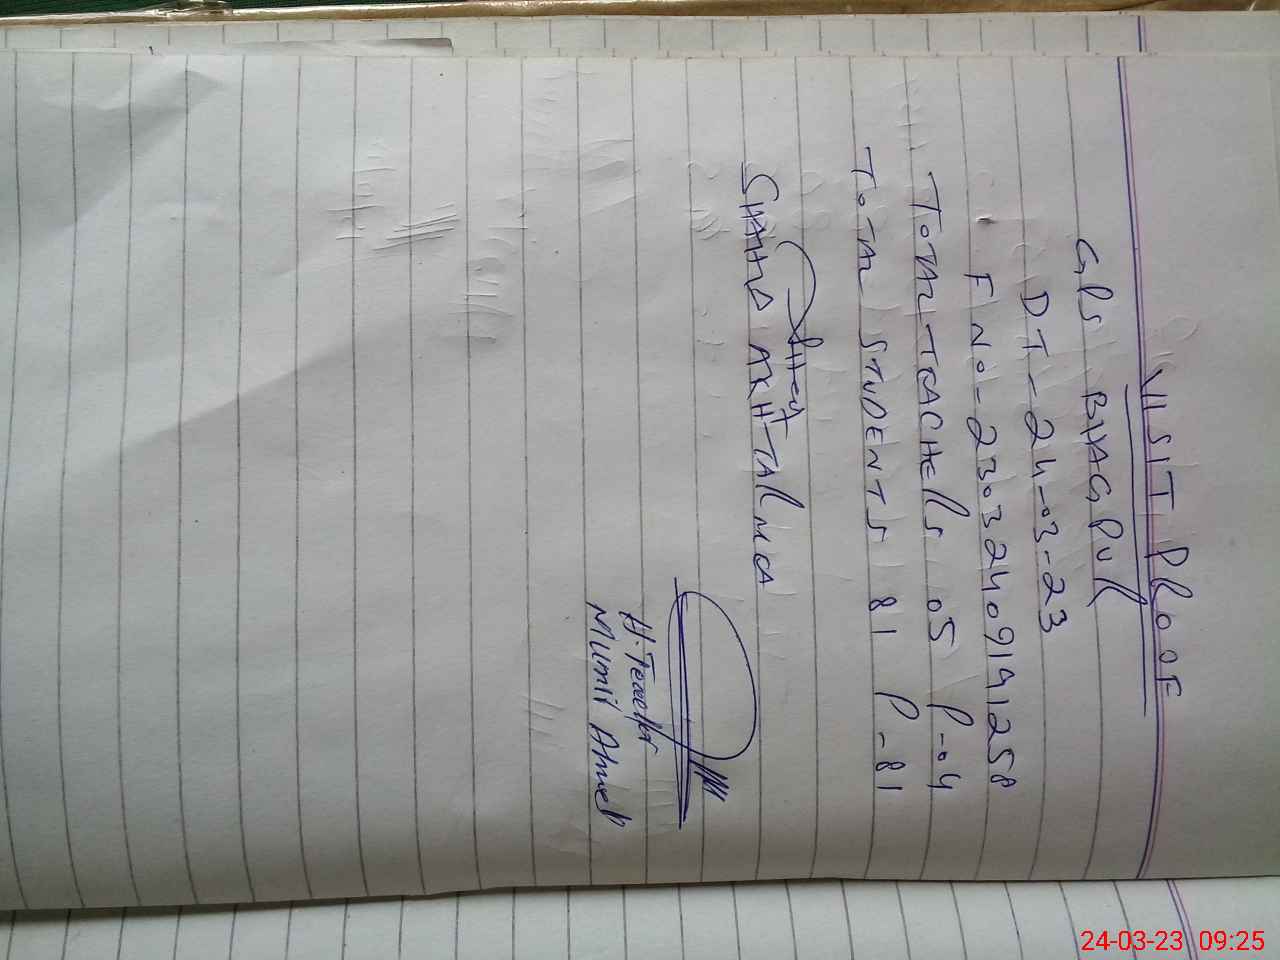 VISIT PROOF
GPS BHAGPUR
DT-24-03-23
F NO-23032409141258
TOTAL TEACHERS 05 P-04
TOTAL STUDENTS 81 P-81
SHAHID AKHTAR MCA
H. Teacher
24-03-23 09:25